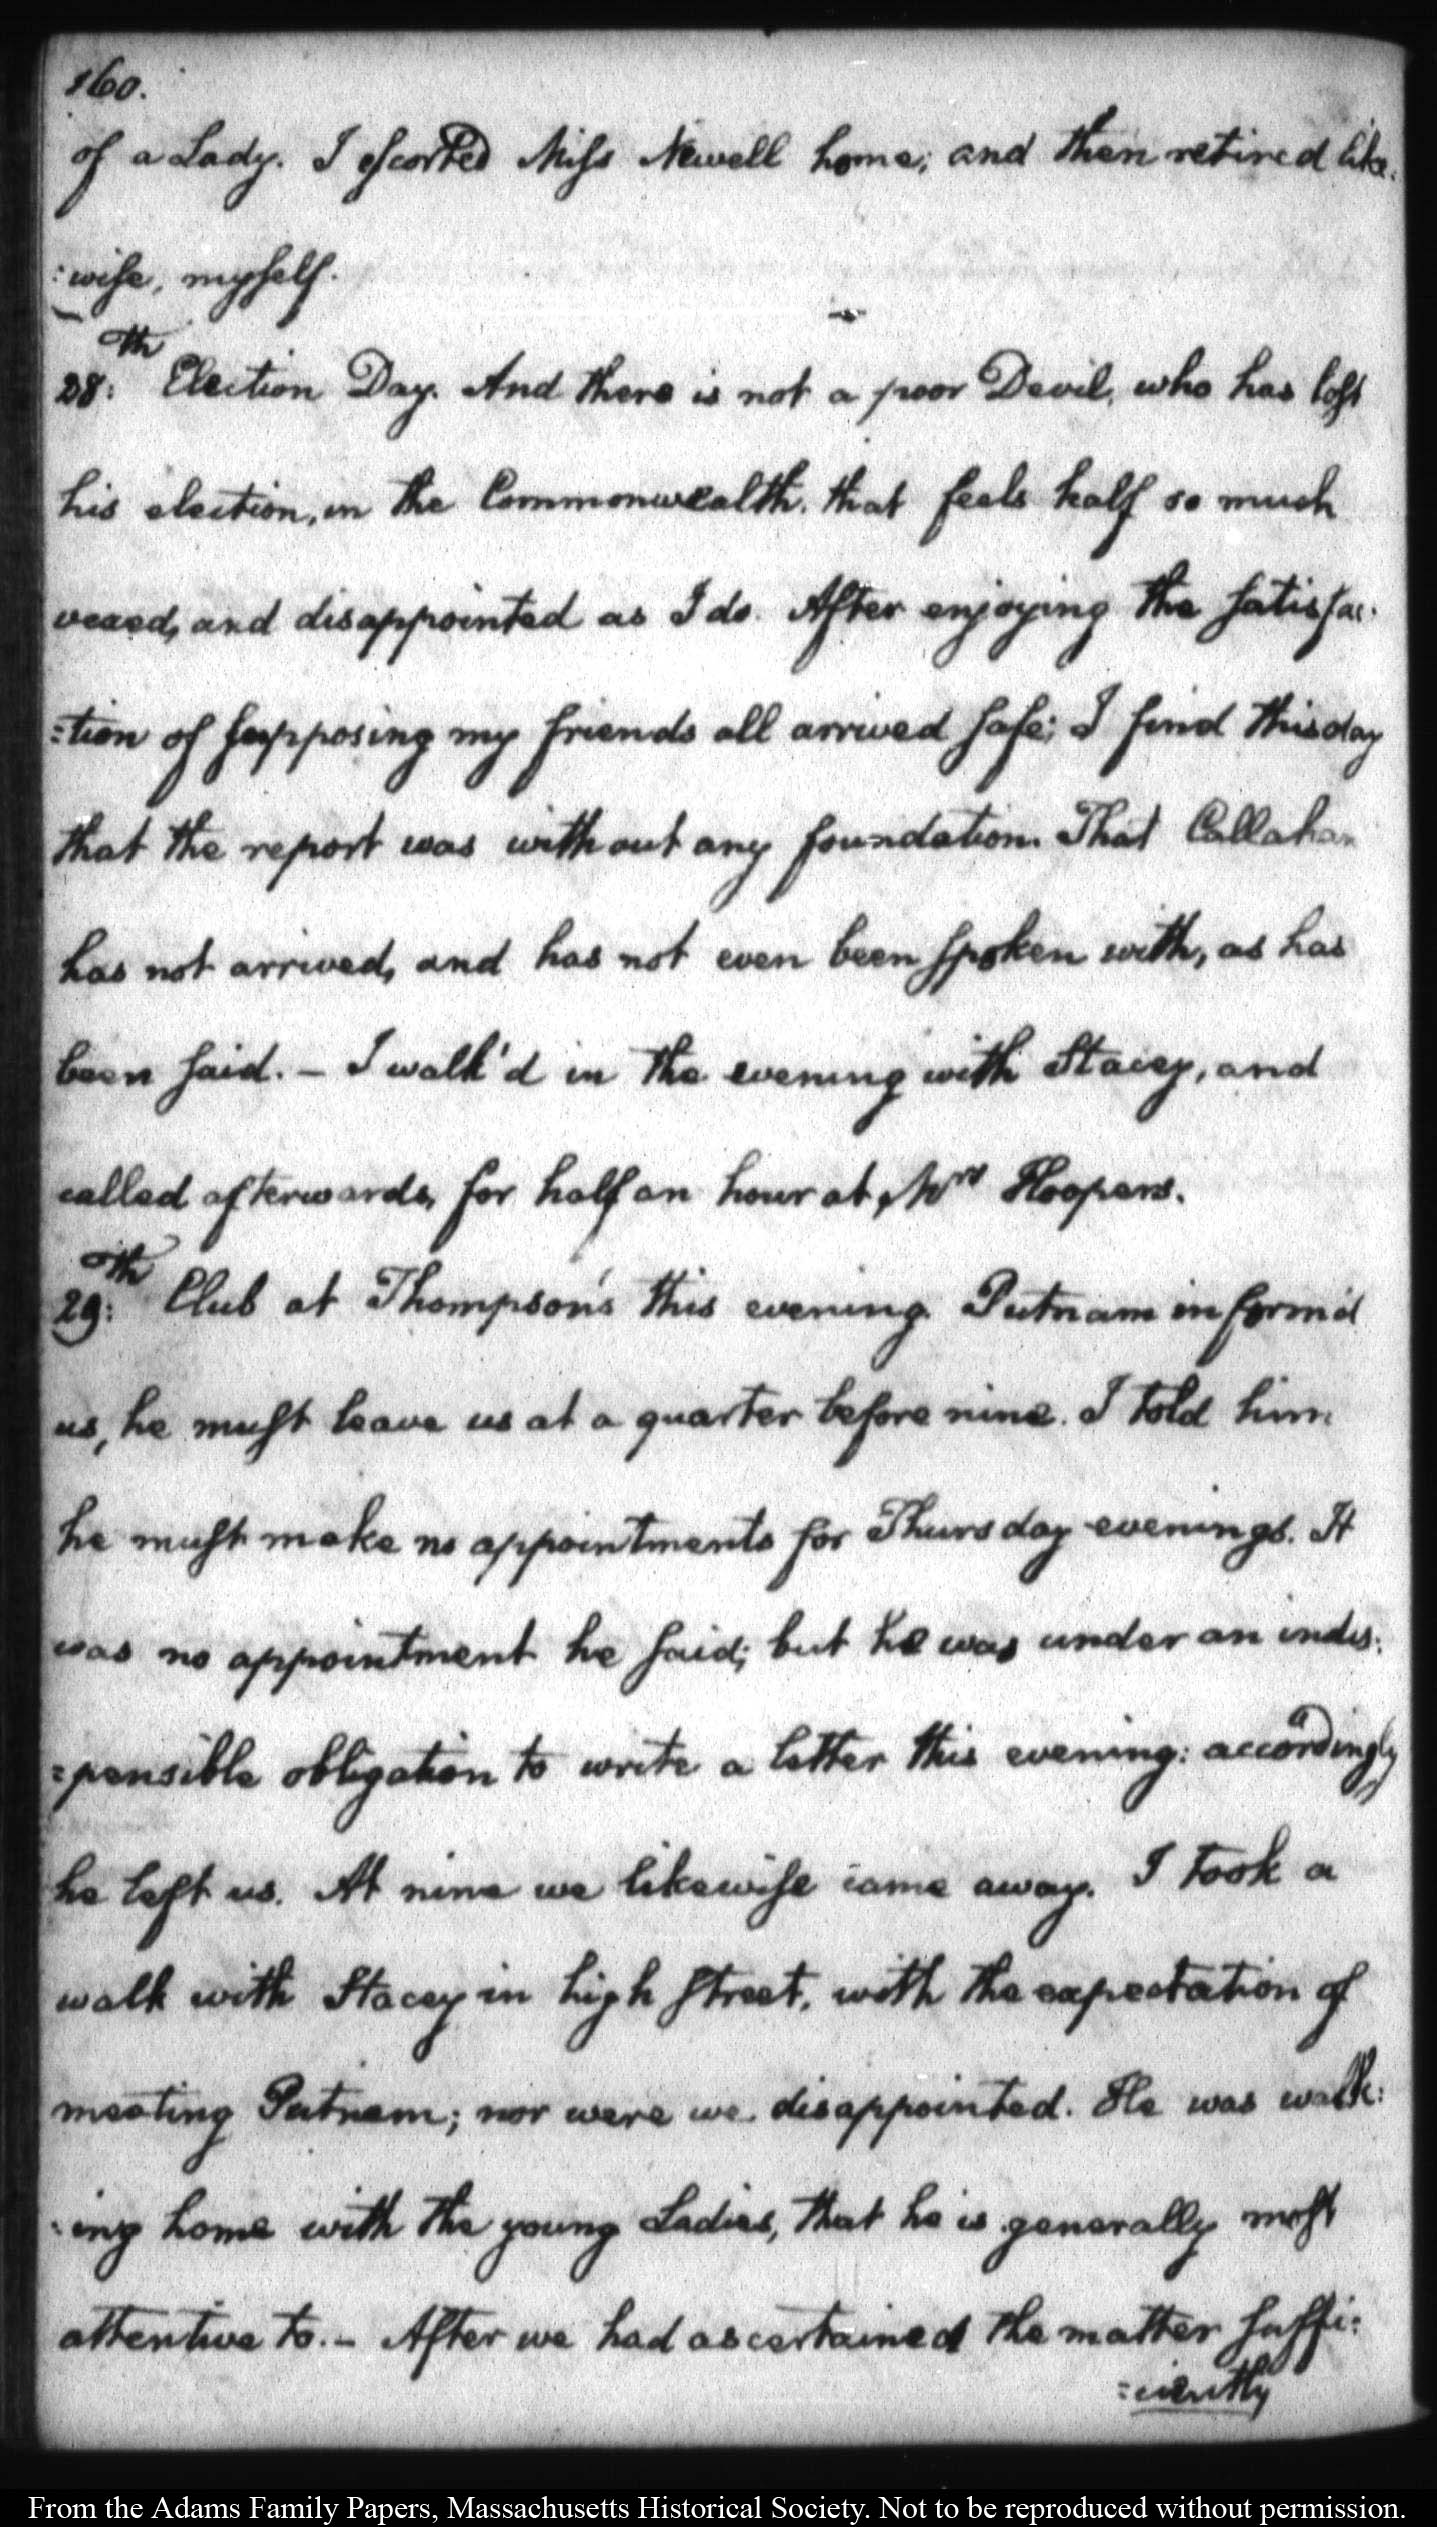 160.
of a Lady. I escorted Miss Newell home; and then retired like:
:wise, myself.
28:th Election Day. And there is not a poor Devil, who has lost
his election, in the Commonwealth, that feels half so much
vexed, and disappointed as I do. After enjoying the satisfac:
=tion of supposing my friends all arrived safe; I find this day
that the report was without any foundation. That Callahan
has not arrived, and has not even been spoken with, as has
been said. — I walk'd in the evening with Stacey, and
called afterwards, for half an hour at Mrs Hoopers.
29:th Club at Thompson's this evening. Putnam inform'd
us, he must leave us at a quarter before nine. I told him
he must make no appointments for Thursday evenings. It
was no appointment he said; but he was under an indis:
=pensible obligation to write a letter this evening: accordingly
he left us. At nine we likewise came away. I took a
walk with Stacey in high street, with the expectation of
meeting Putnam; nor were we disappointed. He was walk:
:ing home with the young Ladies, that he is generally most
attentive to. — After we had ascertained the matter suffi:
=ciently
From the Adams Family Papers, Massachusetts Historical Society. Not to be reproduced without permission.